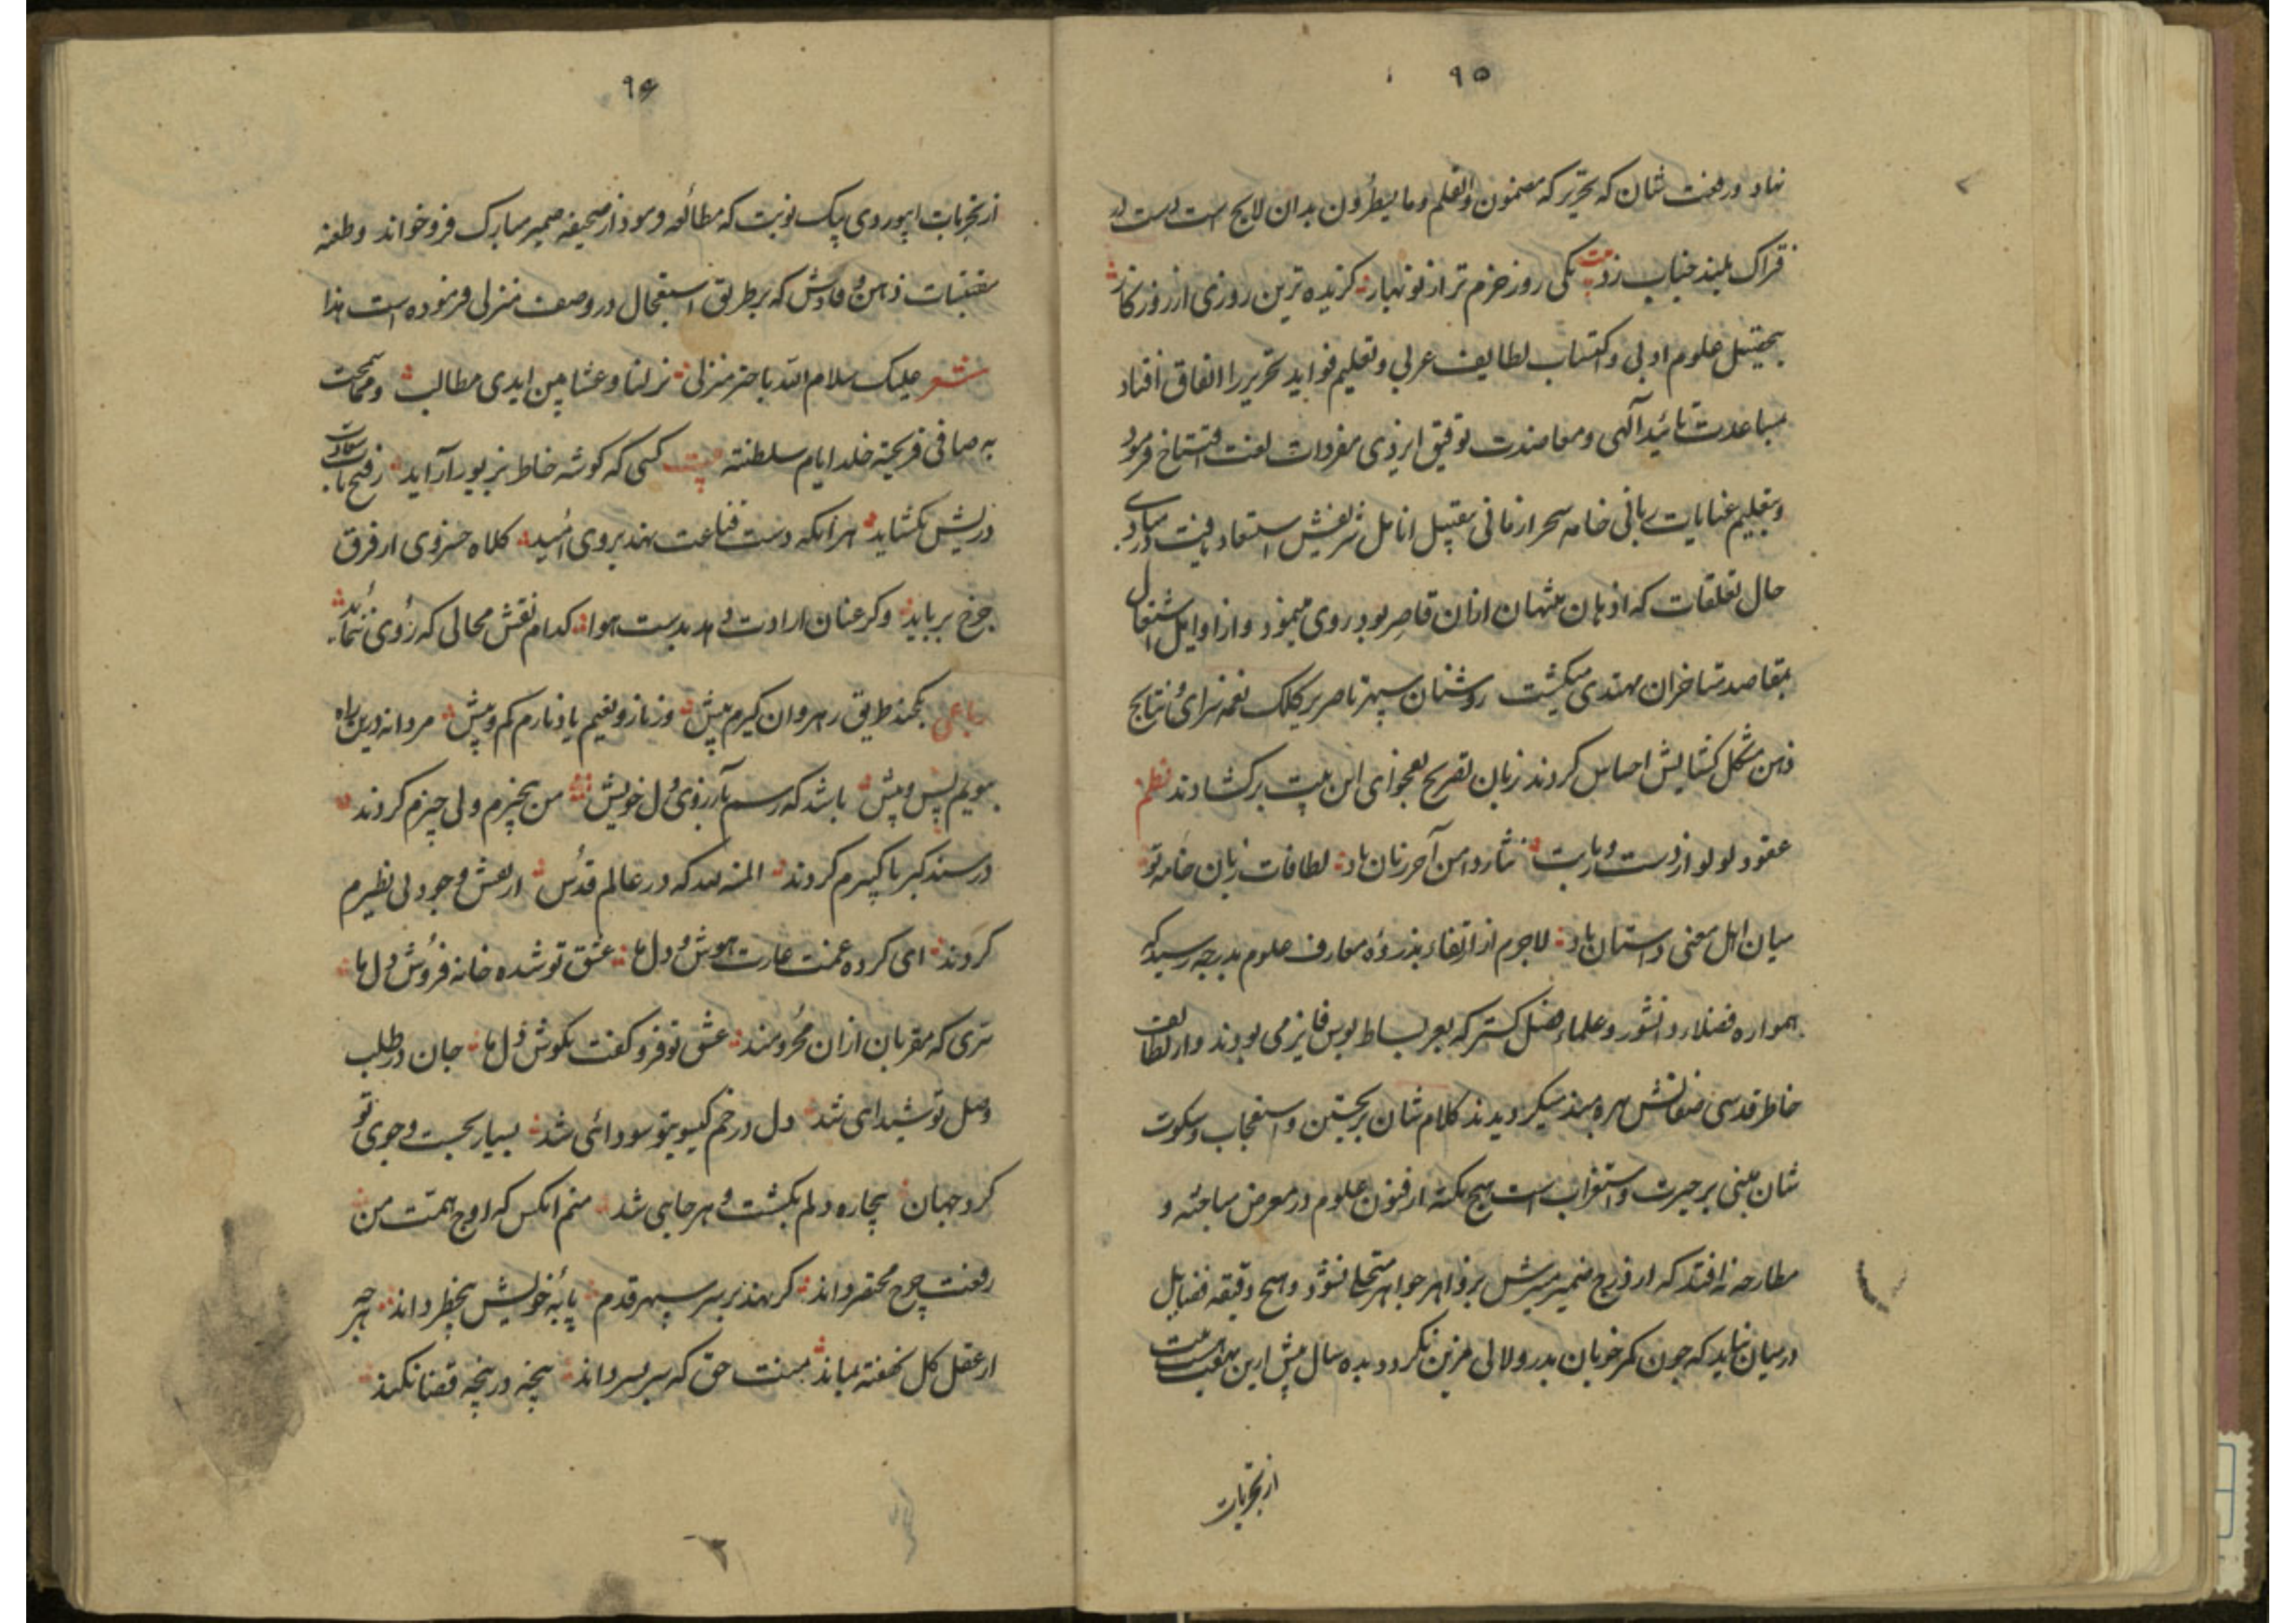 ۹۵
نهاد و رفعت شان که تحریر که مضمون والقلم و ما یسطرون بدان لایح است دست در
فتراک بلند جناب زد بیت یکی روز خرم تر از نوبهار گزیده ترین روزی از روزگار
بتحصیل علوم ادبی و اکتساب لطایف عربی و تعلیم فواید تحریر را اتفاق افتاد
بمساعدت تائید آلهی و معاضدت توفیق ایزدی مفردات لغت افتتاح فرمود
و بتعلیم عنایات ربانی خامه سحر ارقانی بتقبیل انامل شریفش استسعاد یافت در مبادی
حال تعلقات که اذهان منتهیان ازان قاصر بود روی مینمود و از اوایل اشتغال
بمقاصد متاخران مهتدی میگشت روشنان سپهر تا صریر کلک نغمه سرای نتایج
ذهن مشکل کشایش احساس کردند زبان تصریح بفحوای این بیت برکشادند نظم
عقود لولو از دست و بارت نثار دامن آخر زمان باد لطافات زبان خامه تو
میان اهل معنی داستان باد لاجرم از ارتقاء بذروه معارف علوم بدرجه رسید که
همواره فضلاء دانشور و علماء فضل گستر که بعز بساط بوس فایز می بودند و از لطائف
خاطر قدسی صفاتش بهره مند میگردیدند کلام شان بر تحسین و استعجاب و سکوت
شان مبنی بر حیرت و استغراب است هیچ نکته از فنون علوم در معرض مباحثه و
مطارحه نه افتد که از درج ضمیر منیرش بزواهر جواهر متحلی نشود و هیچ دقیقه فضایل
در میان نیاید که چون کمر خوبان بدر و لالی مزین نگردد بده سال پیش ازین
از تجربات
۹۶
از تجربات ابیوردی یک نوبت که مطالعه فرمود از صحیفه ضمیر مبارک فرو خواند و طعنه
مقتبسات ذهن وقادش که بر طریق استعجال در وصف منزلی فرموده است هذا
شعر علیک سلام الله یا خیر منزل نزلنا و عشنا من ایدی مطالب و مما سمحت
به صافی قریحته خلد ایام سلطنته بیت کسی که گوشه خاطر بزیور آراید ز فتح باب سعادت
دریش بکشاید هر آنکه دست قناعت نهد بروی امید کلاه خسروی از فرق
چرخ برباید وگر عنان ارادت دهد بدست هوا کدام نقش محالی که روی ننماید
رباعی بکمند طریق رهروان گیرم پیش وز ناز و نعیم یاد نارم کم و بیش مردانه درین راه
بپویم پس و پیش باشد که رسم بآرزوی دل خویش من بچیزم ولی چیزم کردند
در مسند کبریا کبیرم کردند المنة لله که در عالم قدس از نعش وجود بی نظیرم
کردند ای کرده غمت غارت هوش دل ما عشق تو شده خانه فروش دل ما
سری که مقربان ازان محرومند عشق تو فرو گفت بگوش دل ما جان در طلب
وصل تو شیدایی شد دل در خم گیسوی تو سودائی شد بسیار بجست و جوی تو
گرد جهان بیچاره دلم بگشت و هر جایی شد منم آنکس که اوج همت من
رفعت چرخ مختصر داند گر نهد بر سر سپهر قدم پایه خویش بیخطر داند هر چه
از عقل کل نهفته بماند بمنت حق که سر بسر داند پنجه در پنجه قضا نکند